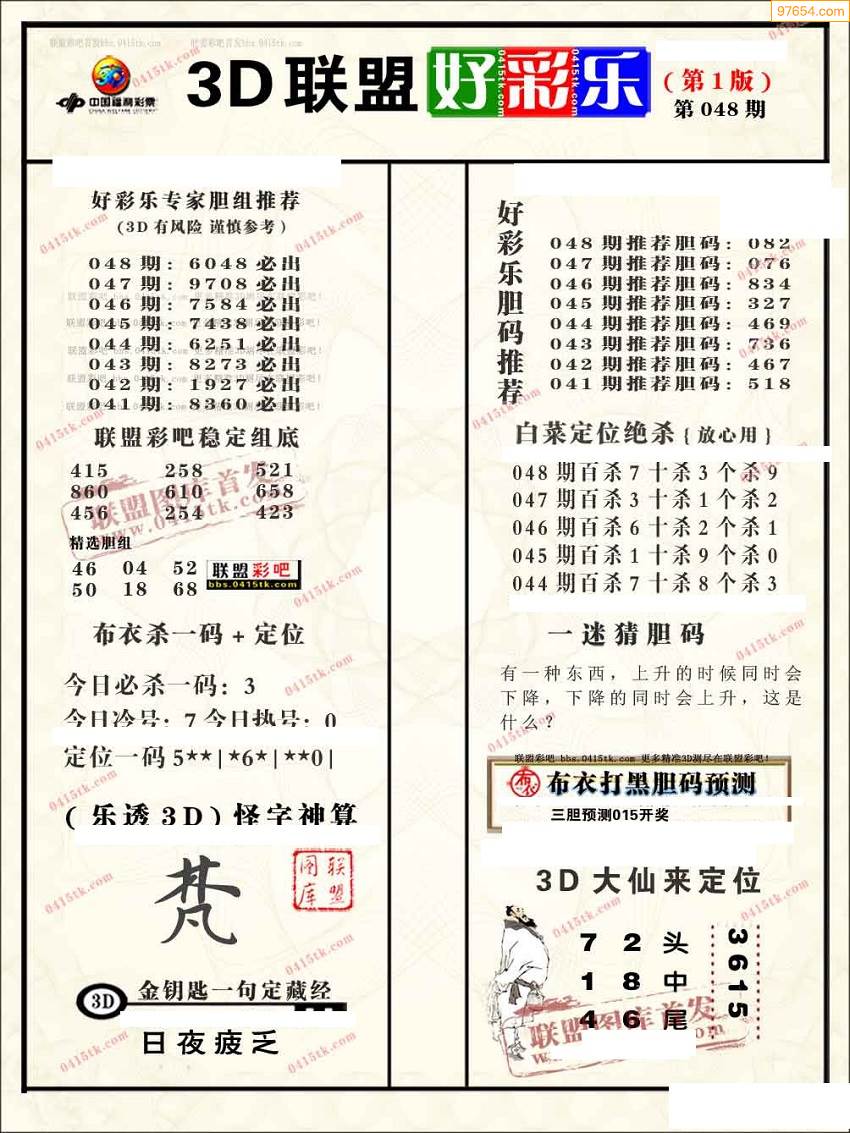 97654.com
联盟彩吧首发bbs.0415tk.com
联盟彩吧首发bbs.0415tk.com
中国福利彩票
CHINA WELFARE LOTTERY
3D联盟好彩乐
0415tk.com
0415tk.com
(第1版)
第048期
好彩乐专家胆组推荐
(3D有风险 谨慎参考)
048期:6048必出
047期:9708必出
046期:7584必出
045期:7438必出
044期:6251必出
043期:8273必出
042期:1927必出
041期:8360必出
联盟彩吧稳定组底
415 258 521
860 610 658
456 254 423
精选胆组
46 04 52
50 18 68
联盟彩吧
bbs.0415tk.com
布衣杀一码+定位
今日必杀一码:3
今日冷号:7 今日热号:0
定位一码5**|*6*|**0|
(乐透3D)怪字神算
梵
联盟图库
3D 金钥匙一句定藏经
日夜疲乏
好彩乐胆码推荐
048期推荐胆码:082
047期推荐胆码:076
046期推荐胆码:834
045期推荐胆码:327
044期推荐胆码:469
043期推荐胆码:736
042期推荐胆码:467
041期推荐胆码:518
白菜定位绝杀{放心用}
048期百杀7十杀3个杀9
047期百杀3十杀1个杀2
046期百杀6十杀2个杀1
045期百杀1十杀9个杀0
044期百杀7十杀8个杀3
一迷猜胆码
有一种东西,上升的时候同时会
下降,下降的同时会上升,这是
什么?
联盟彩吧 bbs.0415tk.com 更多精准3D测尽在联盟彩吧!
布衣 布衣打黑胆码预测
三胆预测015开奖
3D大仙来定位
7 2 头
1 8 中
4 6 尾
3615
联盟图库首发
www.0415tk.com